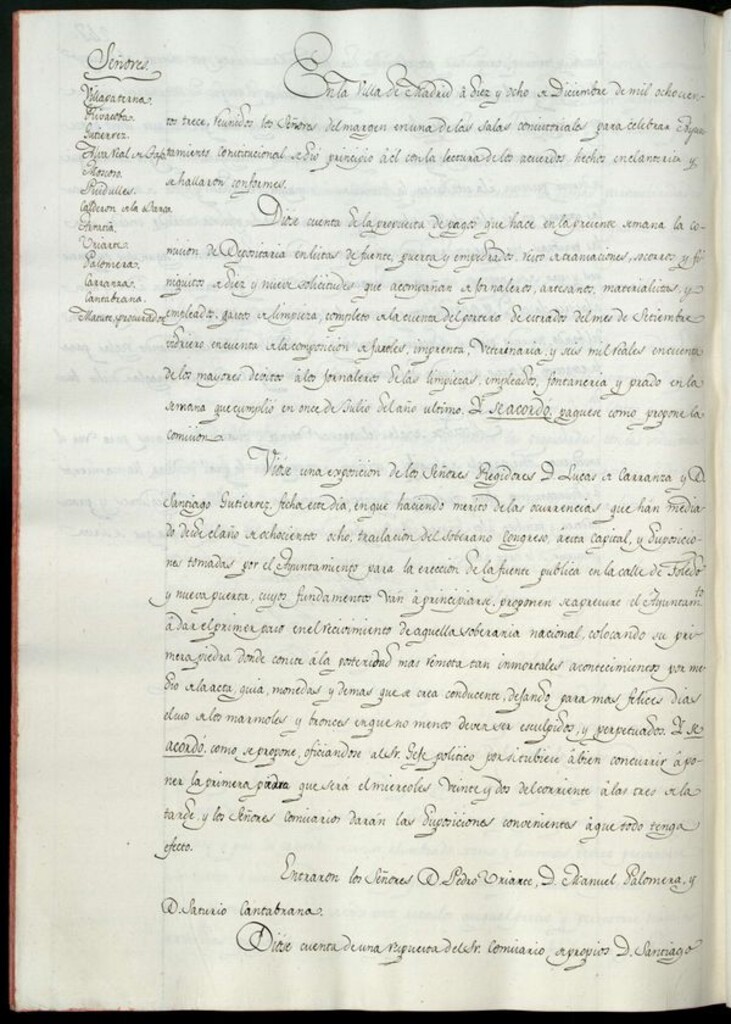 Señores.
Villapaterna.
Rivacoba.
Gutierrez.
Moscoso.
Perdulles.
Calderon de la Barca.
Arratia.
Uriarte.
Palomera.
Carranza.
Cantabrana.
Matute, procurador
En la Villa de Madrid á diez y ocho de Diciembre de mil ochocien-
tos trece, reunidos los Señores del margen en una de las salas consistoriales para celebrar Ayun-
tamiento Constitucional se dió principio á él con la lectura de los acuerdos hechos en el anterior y
se hallaron conformes.
Diose cuenta de la propuesta de pagos que hace en la presente semana la co-
mision de Depositaria en listas de fuente, puerta y empedrados, resto de traslaciones, socorros y fi-
niquitos de diez y nueve solicitudes que acompañan de jornaleros, artesanos, materialistas, y
empleados, gastos de limpieza, completo de la cuenta del portero de estrados del mes de Setiembre
vidriero en cuenta de la composicion de faroles, imprenta, Veterinaria, y seis mil reales en cuenta
de los mayores devitos á los jornaleros de las limpiezas, empleados, fontaneria y prado en la
semana que cumplió en once de Julio del año ultimo. Y se acordó, paguese como propone la
comision.
Viose una exposicion de los Señores Regidores D. Lucas de Carranza y D.
Santiago Gutierrez, fecha este dia, en que haciendo merito de las ocurrencias que han media-
do desde el año de ochocientos ocho, traslacion del soberano Congreso, á esta Capital, y disposicio-
nes tomadas por el Ayuntamiento para la ereccion de la fuente publica en la calle de Toledo
y nueva puerta, cuyos fundamentos ván á principiarse, proponen se apresure el Ayuntamto
á dar el primer paso en el recivimiento de aquella soberania nacional, colocando su pri-
mera piedra donde conste á la posteridad mas remota tan inmortales acontecimientos por me-
dio de la acta, guia, monedas y demas que se crea conducente, dejando para mas felices dias
el uso de los marmoles y bronces en que no menos deven ser esculpidos, y perpetuados. Y se
acordó, como se propone, oficiandose al Sr. Gefe politico por si tubiese á bien concurrir á po-
ner la primera piedra que será el miercoles veinte y dos del corriente á las tres de la
tarde, y los Señores Comisarios darán las disposiciones convenientes á que todo tenga
efecto.
Entraron los Señores D. Pedro Uriarte, D. Manuel Palomera, y
D. Saturio Cantabrana.
Diose cuenta de una respuesta del Sr. Comisario de propios D. Santiago